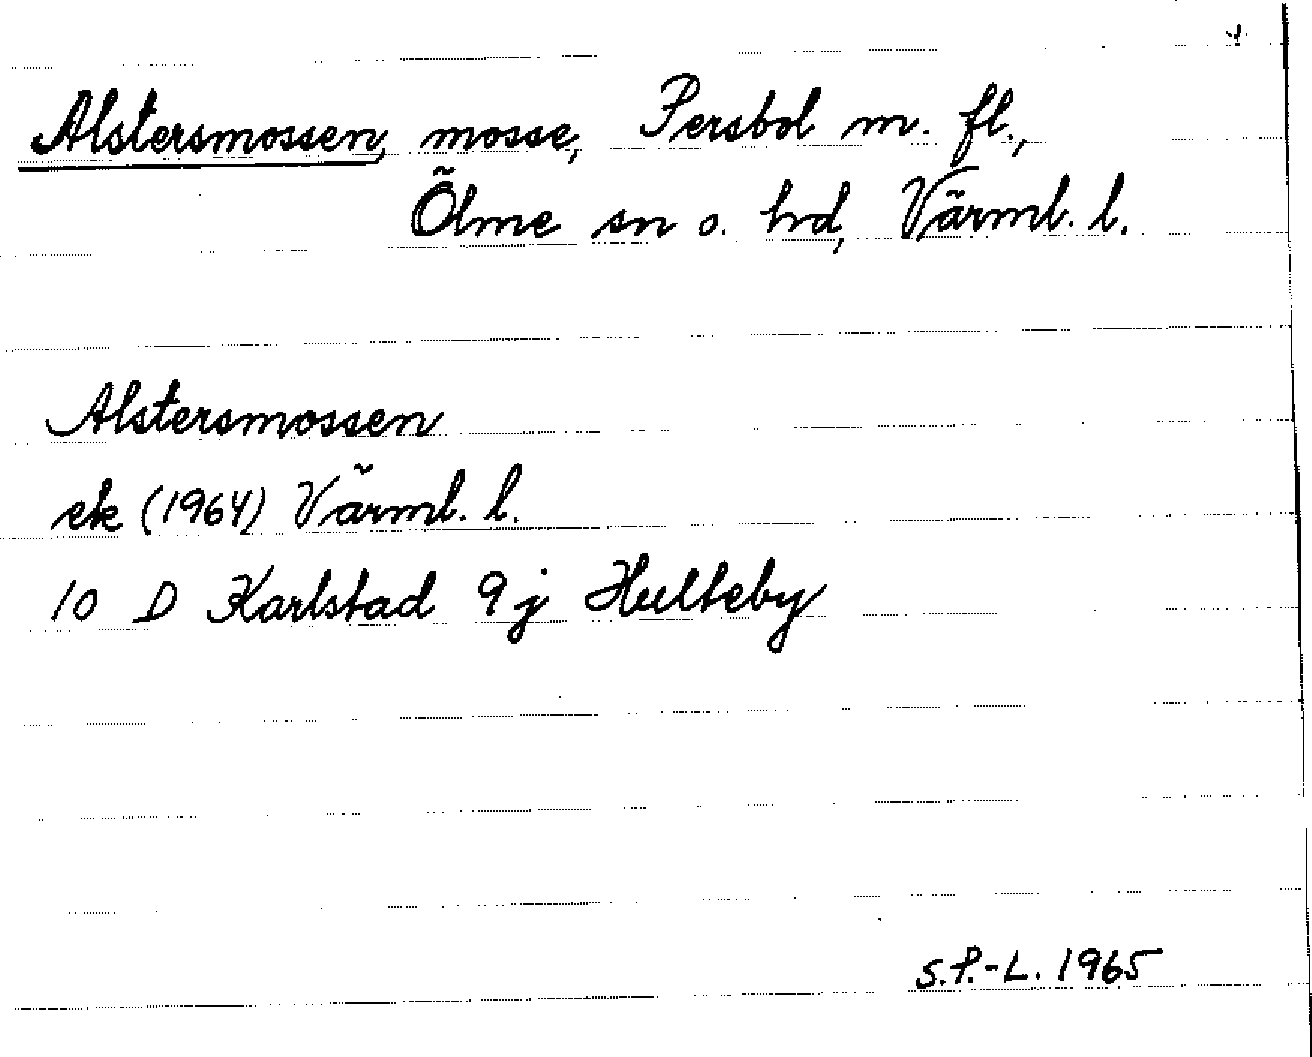 Alstersmossen, mosse, Persbol m. fl.,
Ölme sn o. hd, Värml. l.
Alstersmossen
ek (1964) Värml. l.
10 D Karlstad 9j Hulteby
S.P.-L. 1965